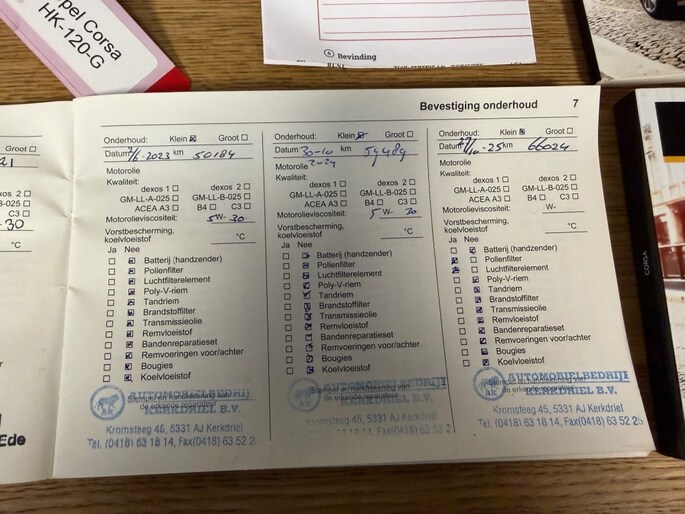 pel Corsa
HK-120-G
Bevinding
Bevestiging onderhoud 7
Onderhoud: Klein Groot
Datum 2023 km 50184
Motorolie
Kwaliteit:
dexos 1 dexos 2
GM-LL-A-025 GM-LL-B-025
ACEA A3 B4 C3
Motorolieviscositeit: 5W-30
Vorstbescherming, °C
koelvloeistof
Ja Nee
Batterij (handzender)
Pollenfilter
Luchtfilterelement
Poly-V-riem
Tandriem
Brandstoffilter
Transmissieolie
Remvloeistof
Bandenreparatieset
Remvoeringen voor/achter
Bougies
Koelvloeistof
Stempel en handtekening van
de erkende reparateur
AUTOMOBIELBEDRIJ
KERKDRIEL B.V.
Kromsteeg 45, 5331 AJ Kerkdriel
Tel. (0418) 63 18 14, Fax(0418) 63 52 2
Onderhoud: Klein Groot
Datum 30-10 km
2024
Motorolie
Kwaliteit:
dexos 1 dexos 2
GM-LL-A-025 GM-LL-B-025
ACEA A3 B4 C3
Motorolieviscositeit: 5W-30
Vorstbescherming, °C
koelvloeistof
Ja Nee
Batterij (handzender)
Pollenfilter
Luchtfilterelement
Poly-V-riem
Tandriem
Brandstoffilter
Transmissieolie
Remvloeistof
Bandenreparatieset
Remvoeringen voor/achter
Bougies
Koelvloeistof
Stempel en handtekening van
de erkende reparateur
AUTOMOBIELBEDRIJ
KERKDRIEL B.V.
Kromsteeg 45, 5331 AJ Kerkdriel
Tel. (0418) 63 18 14, Fax(0418) 63 52 2
Onderhoud: Klein Groot
Datum 25 km 66024
Motorolie
Kwaliteit:
dexos 1 dexos 2
GM-LL-A-025 GM-LL-B-025
ACEA A3 B4 C3
Motorolieviscositeit: W-
Vorstbescherming, °C
koelvloeistof
Ja Nee
Batterij (handzender)
Pollenfilter
Luchtfilterelement
Poly-V-riem
Tandriem
Brandstoffilter
Transmissieolie
Remvloeistof
Bandenreparatieset
Remvoeringen voor/achter
Bougies
Koelvloeistof
Stempel en handtekening van
de erkende reparateur
AUTOMOBIELBEDRIJ
KERKDRIEL B.V.
Kromsteeg 45, 5331 AJ Kerkdriel
Tel. (0418) 63 18 14, Fax(0418) 63 52 2
-30
Ede
CORSA